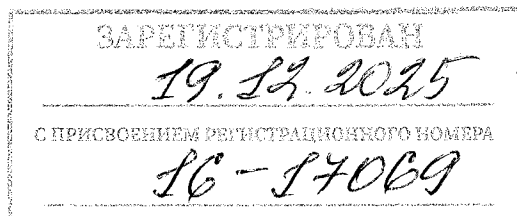 ЗАРЕГИСТРИРОВАН
19.12.2025
С ПРИСВОЕНИЕМ РЕГИСТРАЦИОННОГО НОМЕРА
16-17069